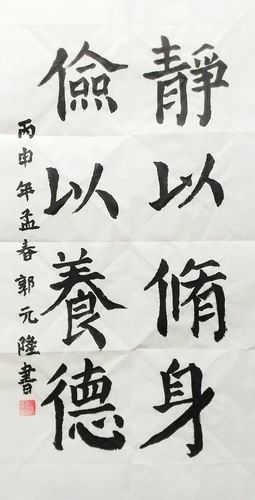 靜以脩身
儉以養德
丙申年孟春郭元隆書